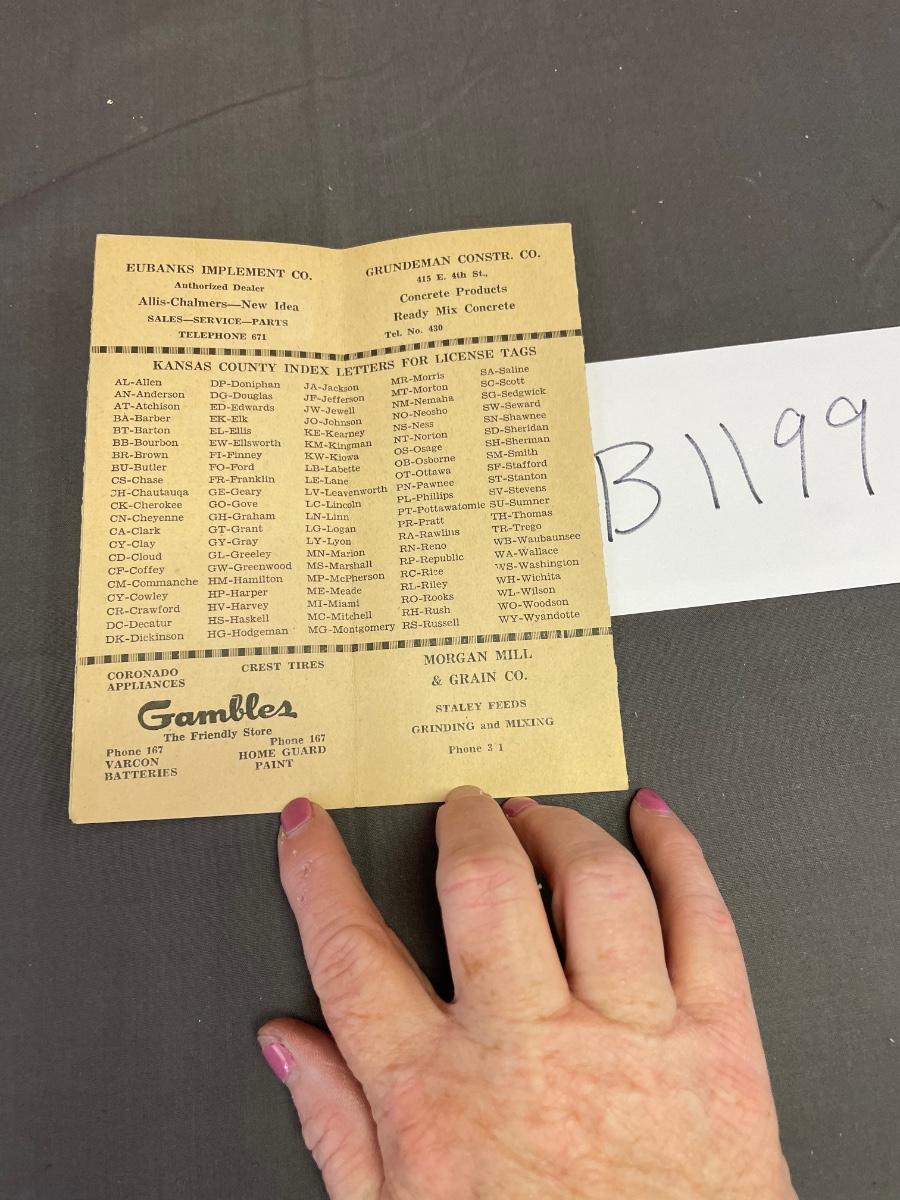 EUBANKS IMPLEMENT CO.
Authorized Dealer
Allis-Chalmers—New Idea
SALES—SERVICE—PARTS
TELEPHONE 671
GRUNDEMAN CONSTR. CO.
415 E. 4th St.,
Concrete Products
Ready Mix Concrete
Tel. No. 430
KANSAS COUNTY INDEX LETTERS FOR LICENSE TAGS
AL-Allen
AN-Anderson
AT-Atchison
BA-Barber
BT-Barton
BB-Bourbon
BR-Brown
BU-Butler
CS-Chase
CH-Chautauqa
CK-Cherokee
CN-Cheyenne
CA-Clark
CY-Clay
CD-Cloud
CF-Coffey
CM-Commanche
CY-Cowley
CR-Crawford
DC-Decatur
DK-Dickinson
DP-Doniphan
DG-Douglas
ED-Edwards
EK-Elk
EL-Ellis
EW-Ellsworth
FI-Finney
FO-Ford
FR-Franklin
GE-Geary
GO-Gove
GH-Graham
GT-Grant
GY-Gray
GL-Greeley
GW-Greenwood
HM-Hamilton
HP-Harper
HV-Harvey
HS-Haskell
HG-Hodgeman
JA-Jackson
JF-Jefferson
JW-Jewell
JO-Johnson
KE-Kearney
KM-Kingman
KW-Kiowa
LB-Labette
LE-Lane
LV-Leavenworth
LC-Lincoln
LN-Linn
LG-Logan
LY-Lyon
MN-Marion
MS-Marshall
MP-McPherson
ME-Meade
MI-Miami
MC-Mitchell
MG-Montgomery
MR-Morris
MT-Morton
NM-Nemaha
NO-Neosho
NS-Ness
NT-Norton
OS-Osage
OB-Osborne
OT-Ottawa
PN-Pawnee
PL-Phillips
PT-Pottawatomie
PR-Pratt
RA-Rawlins
RN-Reno
RP-Republic
RC-Rice
RL-Riley
RO-Rooks
RH-Rush
RS-Russell
SA-Saline
SC-Scott
SG-Sedgwick
SW-Seward
SN-Shawnee
SD-Sheridan
SH-Sherman
SM-Smith
SF-Stafford
ST-Stanton
SV-Stevens
SU-Sumner
TH-Thomas
TR-Trego
WB-Waubaunsee
WA-Wallace
WS-Washington
WH-Wichita
WL-Wilson
WO-Woodson
WY-Wyandotte
CORONADO
APPLIANCES
CREST TIRES
Gambles
The Friendly Store
Phone 167
VARCON
BATTERIES
Phone 167
HOME GUARD
PAINT
MORGAN MILL
& GRAIN CO.
STALEY FEEDS
GRINDING and MIXING
Phone 3 1
B1199